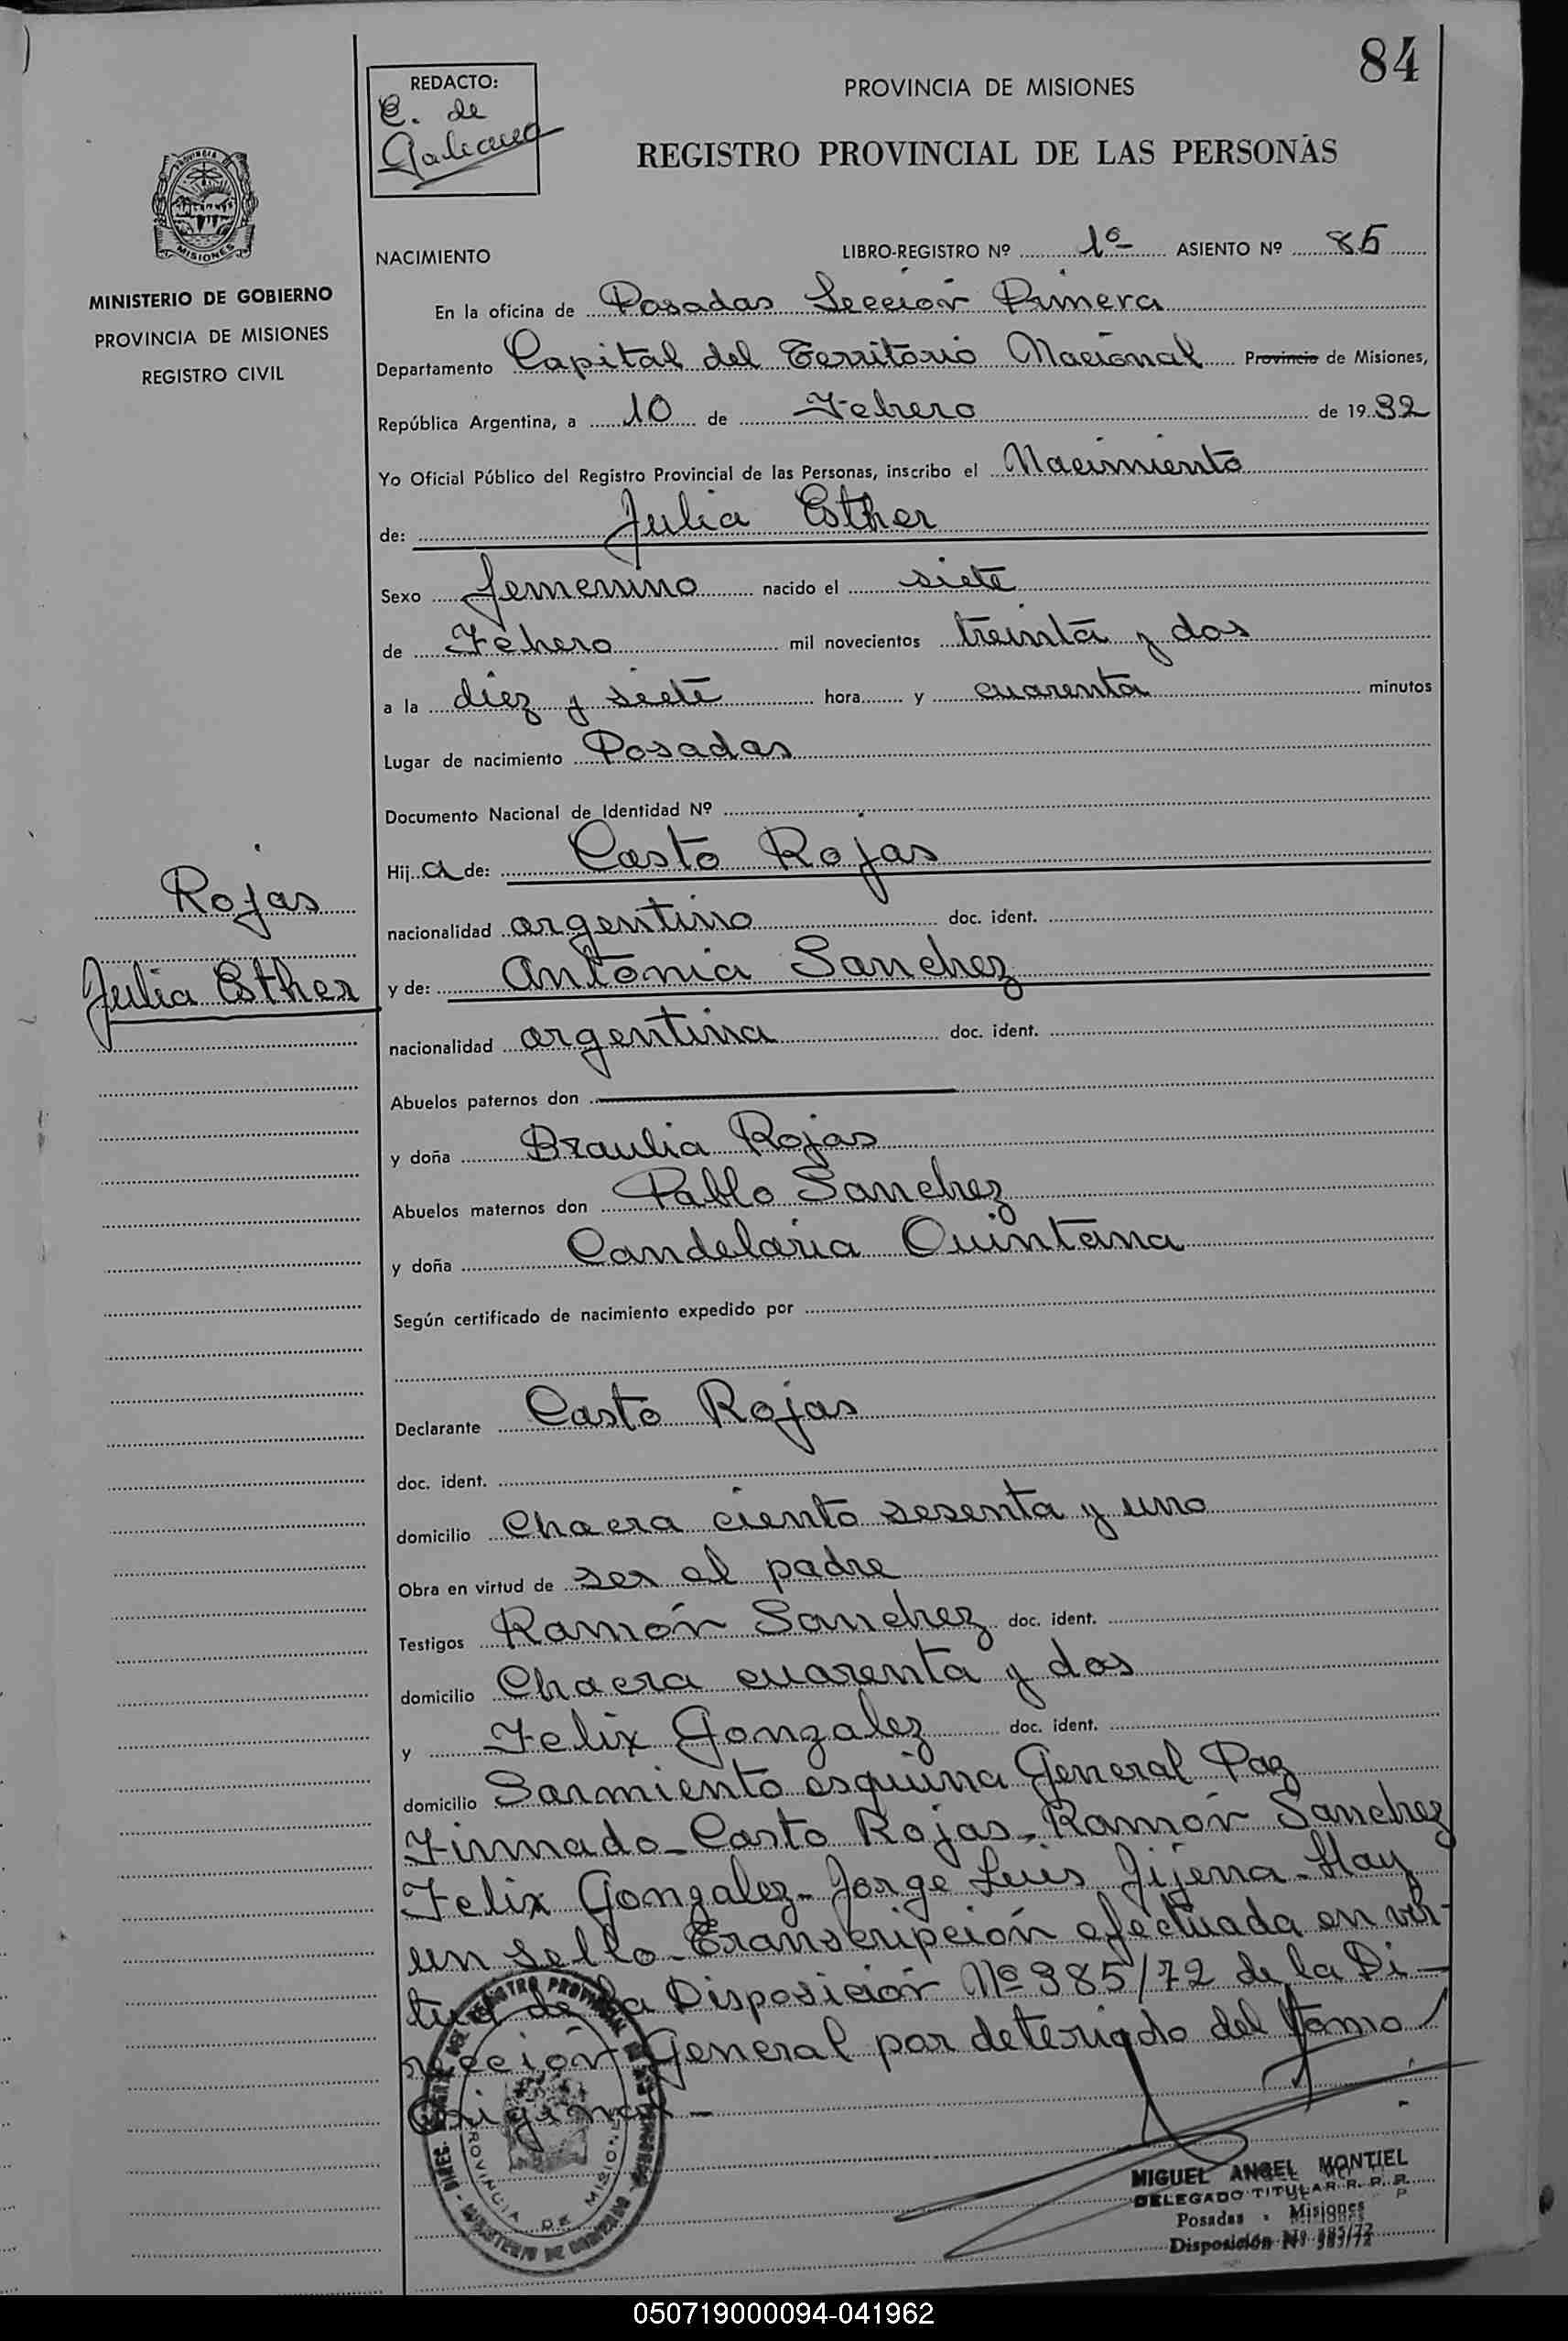 84
REDACTO:
C. de
Galeano
PROVINCIA DE MISIONES
REGISTRO PROVINCIAL DE LAS PERSONAS
PROVINCIA DE
MISIONES
MINISTERIO DE GOBIERNO
PROVINCIA DE MISIONES
REGISTRO CIVIL
NACIMIENTO LIBRO-REGISTRO Nº 1º ASIENTO Nº 85
En la oficina de Posadas Sección Primera
Departamento Capital del Territorio Nacional Provincia de Misiones,
República Argentina, a 10 de Febrero de 1932
Yo Oficial Público del Registro Provincial de las Personas, inscribo el Nacimiento
de: Julia Esther
Sexo femenino nacido el siete
de Febrero mil novecientos treinta y dos
a la diez y siete hora y cuarenta minutos
Lugar de nacimiento Posadas
Documento Nacional de Identidad Nº
Hija de: Casto Rojas
Rojas
nacionalidad argentino doc. ident.
Julia Esther
y de: Antonia Sanchez
nacionalidad argentina doc. ident.
Abuelos paternos don
y doña Braulia Rojas
Abuelos maternos don Pablo Sanchez
y doña Candelaria Quintana
Según certificado de nacimiento expedido por
Declarante Casto Rojas
doc. ident.
domicilio Chacra ciento sesenta y uno
Obra en virtud de ser el padre
Testigos Ramón Sanchez doc. ident.
domicilio Chacra cuarenta y dos
y Felix Gonzalez doc. ident.
domicilio Sarmiento esquina General Paz
Firmado_ Casto Rojas_ Ramón Sanchez
Felix Gonzalez_ Jorge Luis Jijena_ Hay
un sello_ Transcripción efectuada en vir-
tud de la Disposición Nº 385/72 de la Di-
rección General por deteriodo del Tomo
Original_
PROVINCIA DE MISIONES
MIGUEL ANGEL MONTIEL
DELEGADO TITULAR R. P. P.
Posadas - Misiones
Disposición Nº 385/72
050719000094-041962